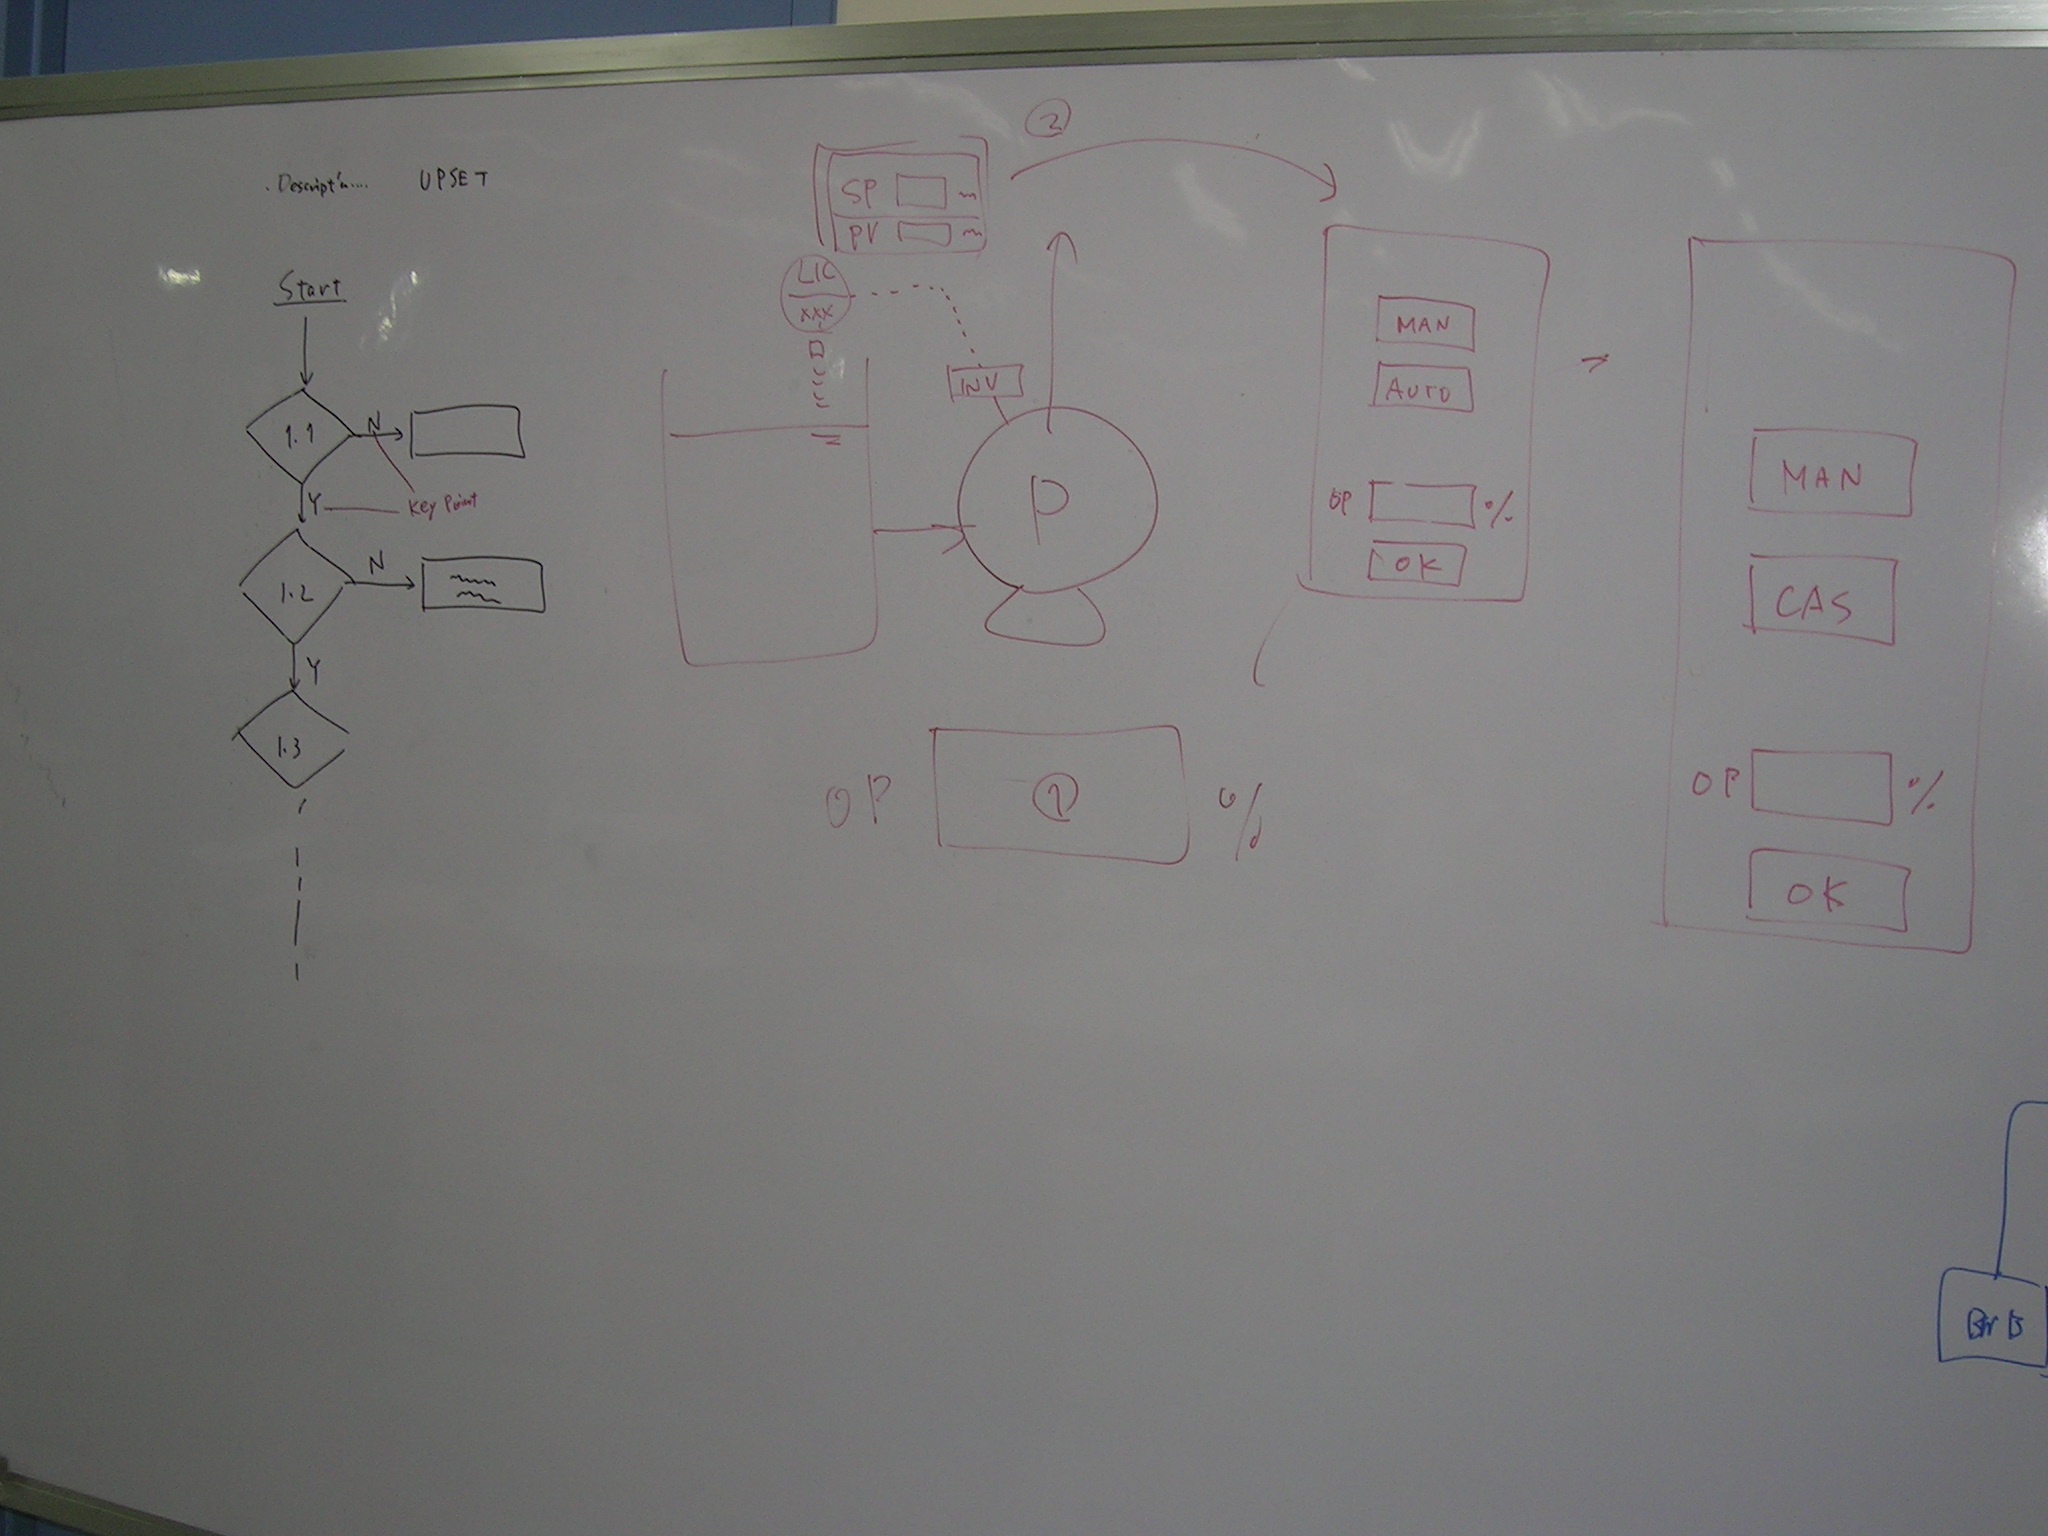 . Descript'n.... UPSET
Start
1.1
N
Y
Key Point
1.2
N
Y
1.3
2
SP
PV
LIC
xxx
INV
P
OP 1 %
MAN
AUTO
OP %
OK
MAN
CAS
OP %
OK